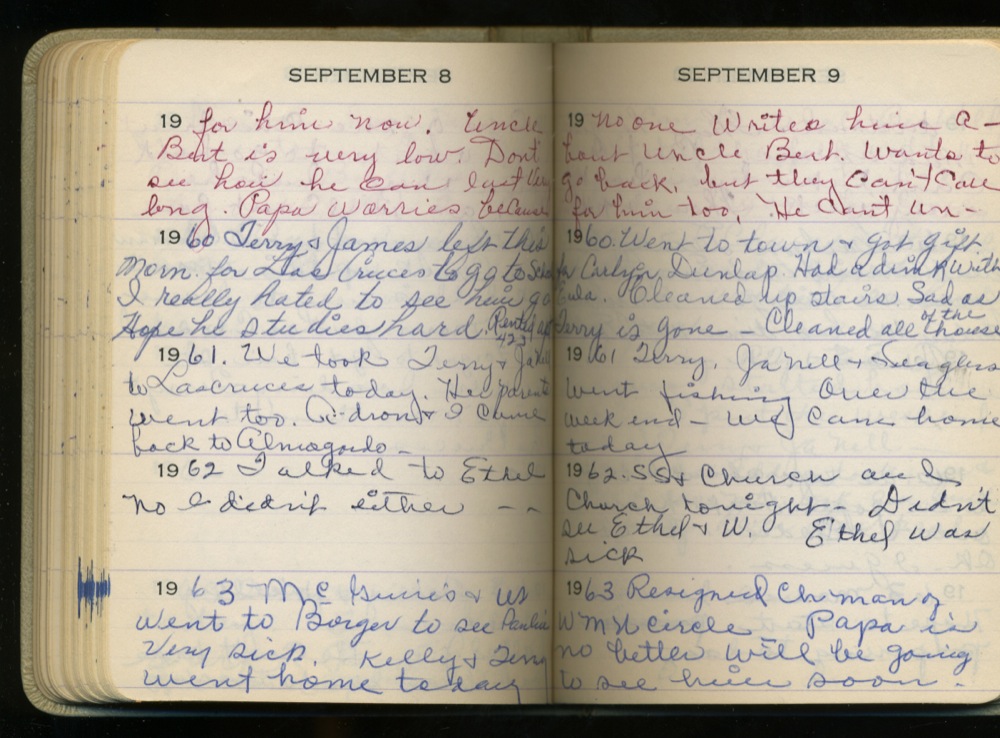 SEPTEMBER 8
19 for him now. Uncle
Bert is very low. Dont
see how he can last very
long. Papa worries because
1960 Terry & James left this
Morn. for Las Cruces to go to
I really hated to see him go
Hope he studies hard. Rented apt
423
1961. We took Terry & Janell
to Lascruces today. Her parents
went too. & I came
back to Almogordo -
1962 Talked to Ethel
no I didn't either - -
1963 Mc Guires & us
went to Borger to see
Very sick. Kelly & Terry
went home today
SEPTEMBER 9
19 no one Writes him a-
bout Uncle Bert. Wants to
go back, but they Can't Care
for him too. He Cant un-
1960. Went to town & got gift
for Dunlap. Had a drink with
Eula. Cleaned up stairs. Sad as
Terry is gone - Cleaned all of the house
1961 Terry, Janell &
went fishing Over the
week end - We Came home
today
1962. SS & Church and
Church tonight - Didn't
see Ethel & W. Ethel was
sick
1963 Resigned Chrman of
W M U circle - Papa is
no better will be going
to see him soon.